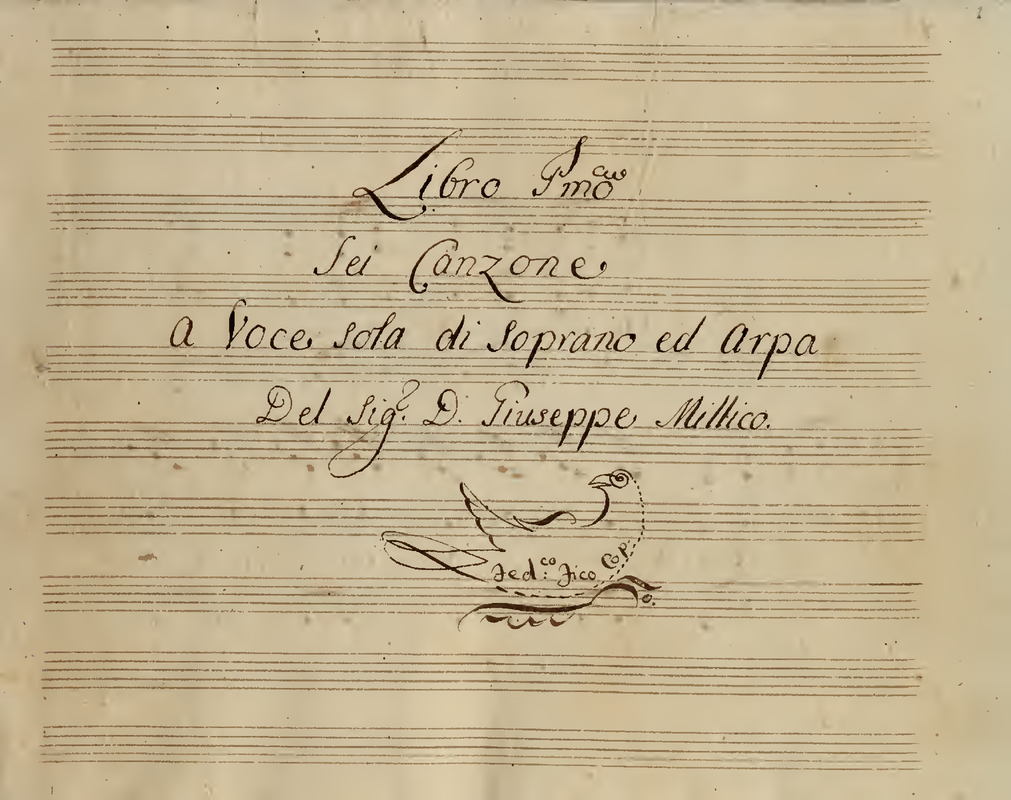 1
Libro Pmo
Sei Canzone
a Voce sola di Soprano ed Arpa
Del Sigr. D. Giuseppe Millico.
Fedco: Fico Cop.